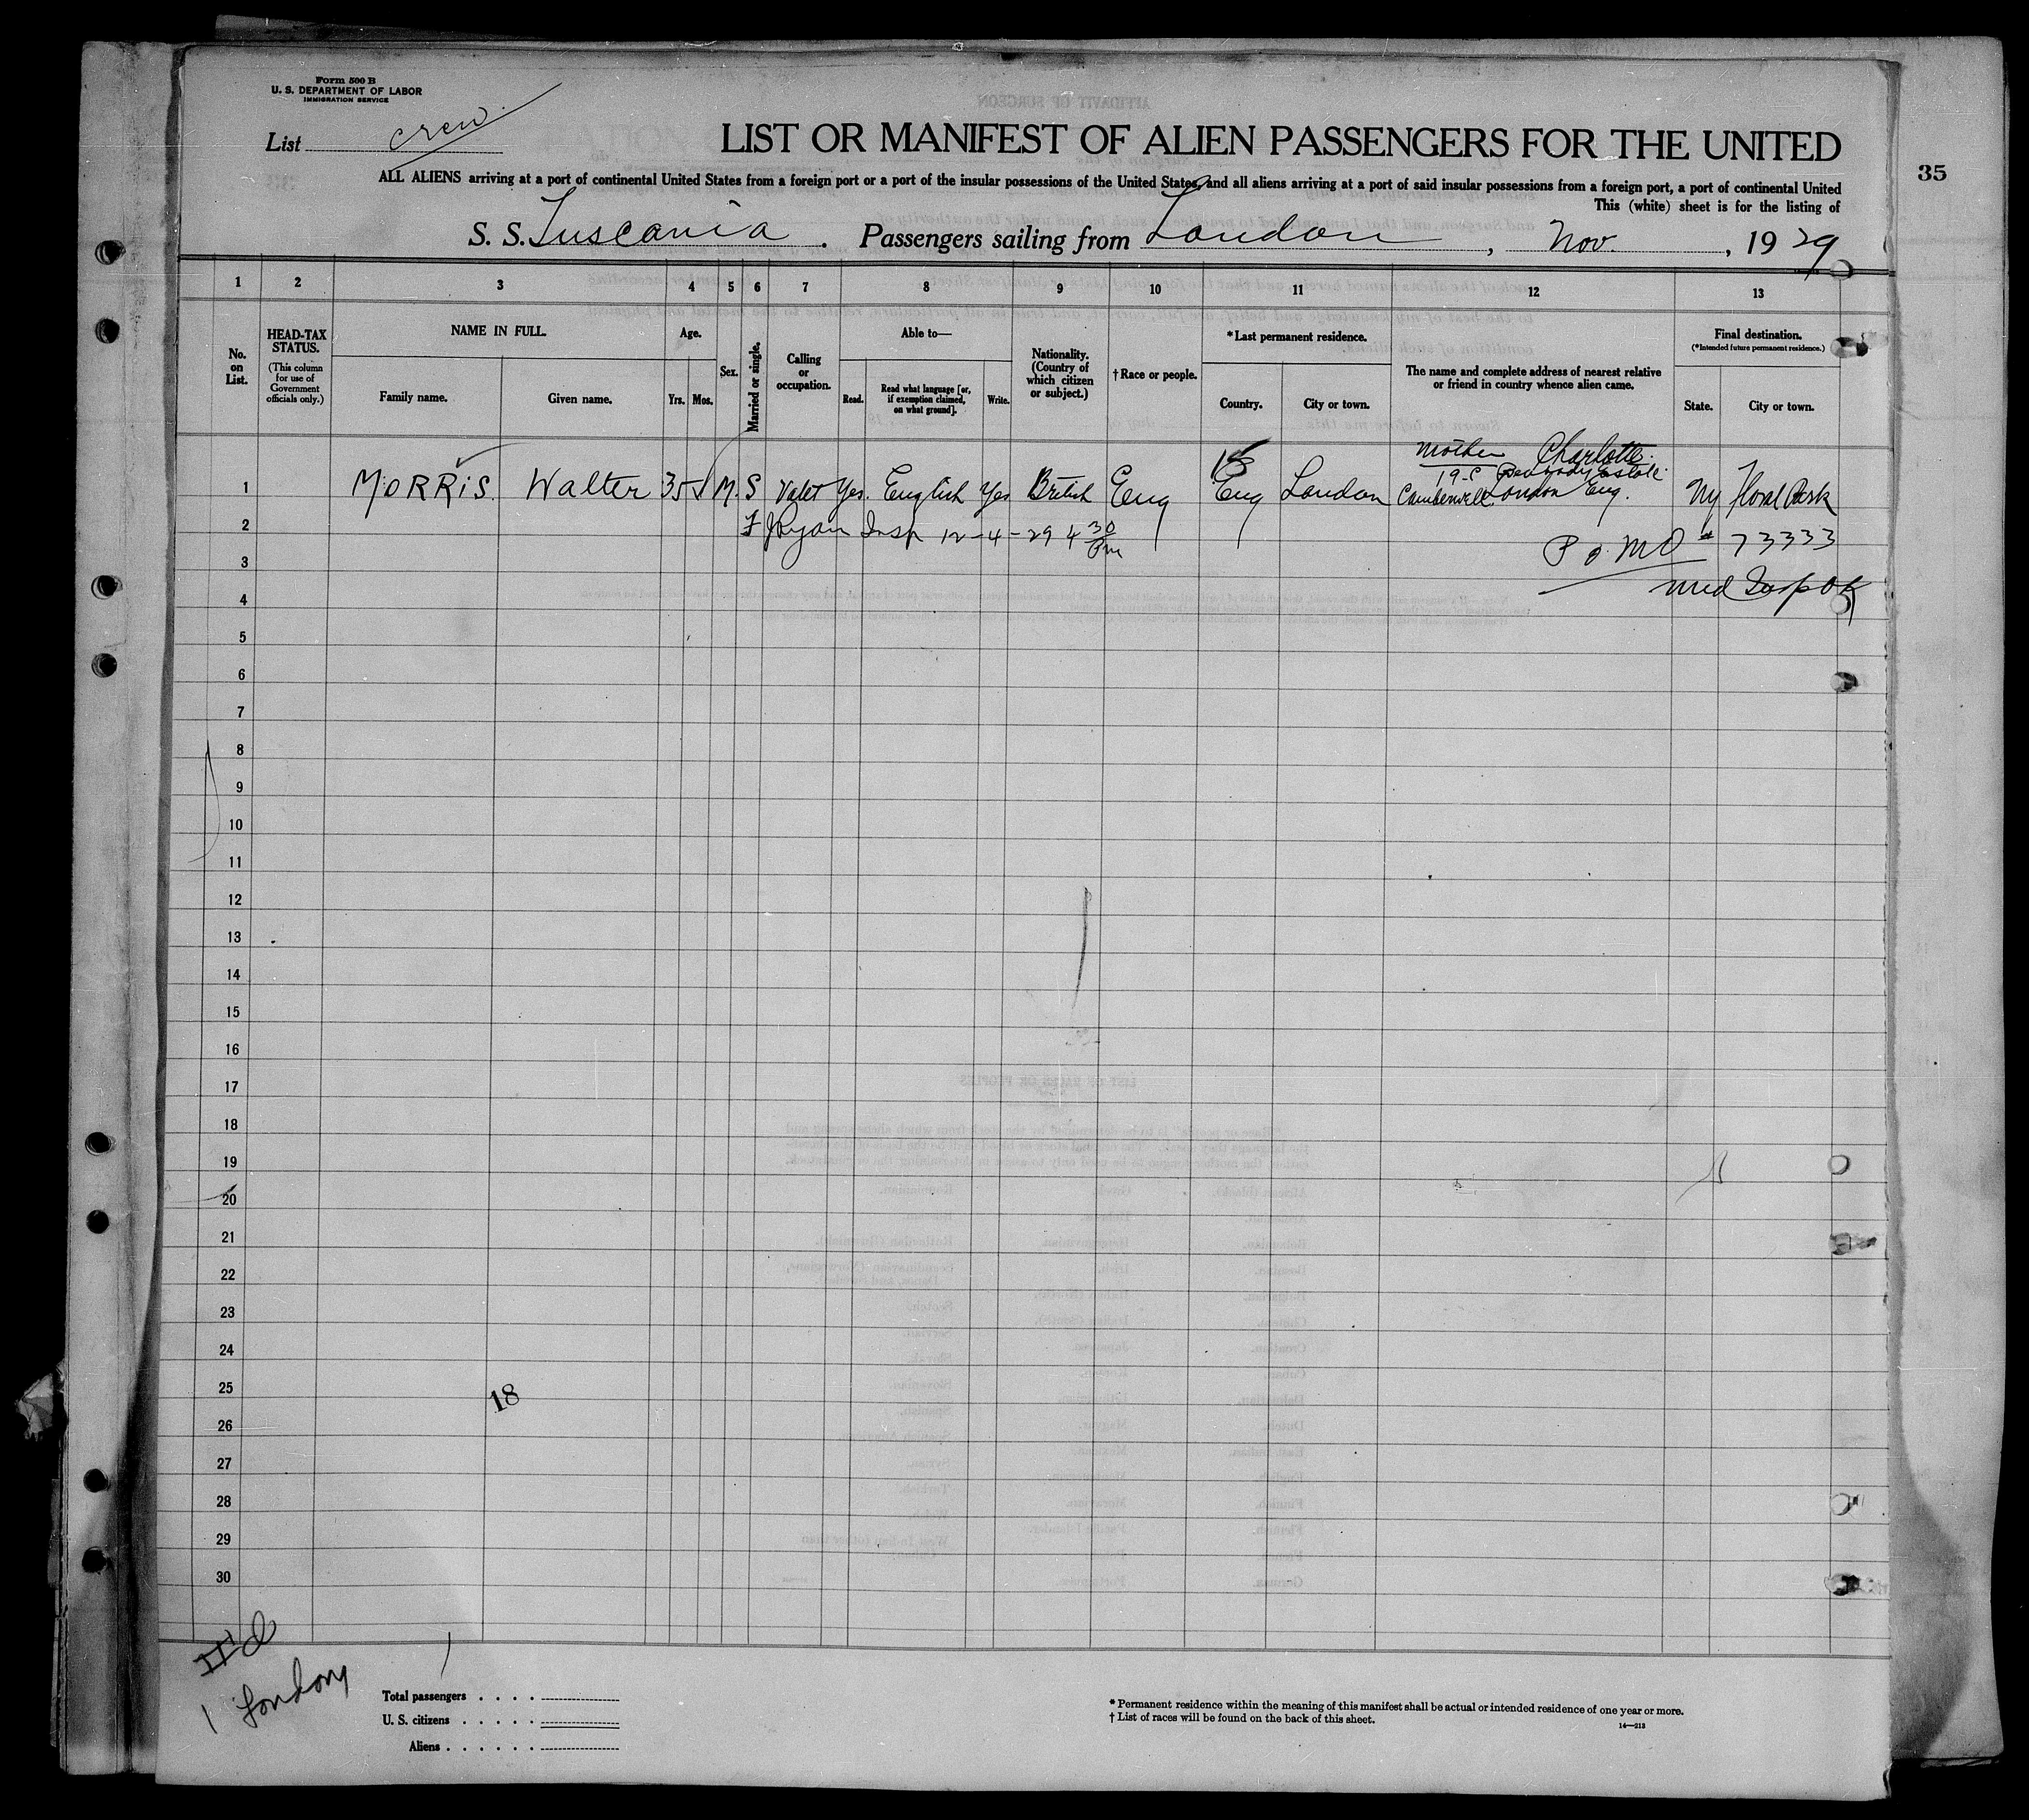 Form 500 B
U. S. DEPARTMENT OF LABOR
IMMIGRATION SERVICE
List crew
LIST OR MANIFEST OF ALIEN PASSENGERS FOR THE UNITED
35
ALL ALIENS arriving at a port of continental United States from a foreign port or a port of the insular possessions of the United States, and all aliens arriving at a port of said insular possessions from a foreign port, a port of continental United
This (white) sheet is for the listing of
S. S. Tuscania . Passengers sailing from London , Nov. , 19 29
1 2 3 4 5 6 7 8 9 10 11 12 13
No. on List.
HEAD-TAX STATUS.
(This column for use of Government officials only.)
NAME IN FULL.
Family name.
Given name.
Age.
Yrs. Mos.
Sex.
Married or single.
Calling or occupation.
Able to—
Read.
Read what language [or, if exemption claimed, on what ground].
Write.
Nationality. (Country of which citizen or subject.)
† Race or people.
* Last permanent residence.
Country.
City or town.
The name and complete address of nearest relative or friend in country whence alien came.
Final destination.
(*Intended future permanent residence.)
State.
City or town.
mother Charlotte
19-C Peabody Estate
1 MORRIS Walter 35 M. S Valet Yes. English Yes British Eng Eng London Camberwell London Eng. Ny Floral Park
2 F J Ryan Insp 12-4-29 4 30 Pm
P.o. MO # 73333
3
med Insp OK
4
5
6
7
8
9
10
11
12
13
14
15
16
17
18
19
20
21
22
23
24
25
18
26
27
28
29
30
1 London
Total passengers . . . .
U. S. citizens . . . . .
Aliens . . . . . .
* Permanent residence within the meaning of this manifest shall be actual or intended residence of one year or more.
† List of races will be found on the back of this sheet.
14—213